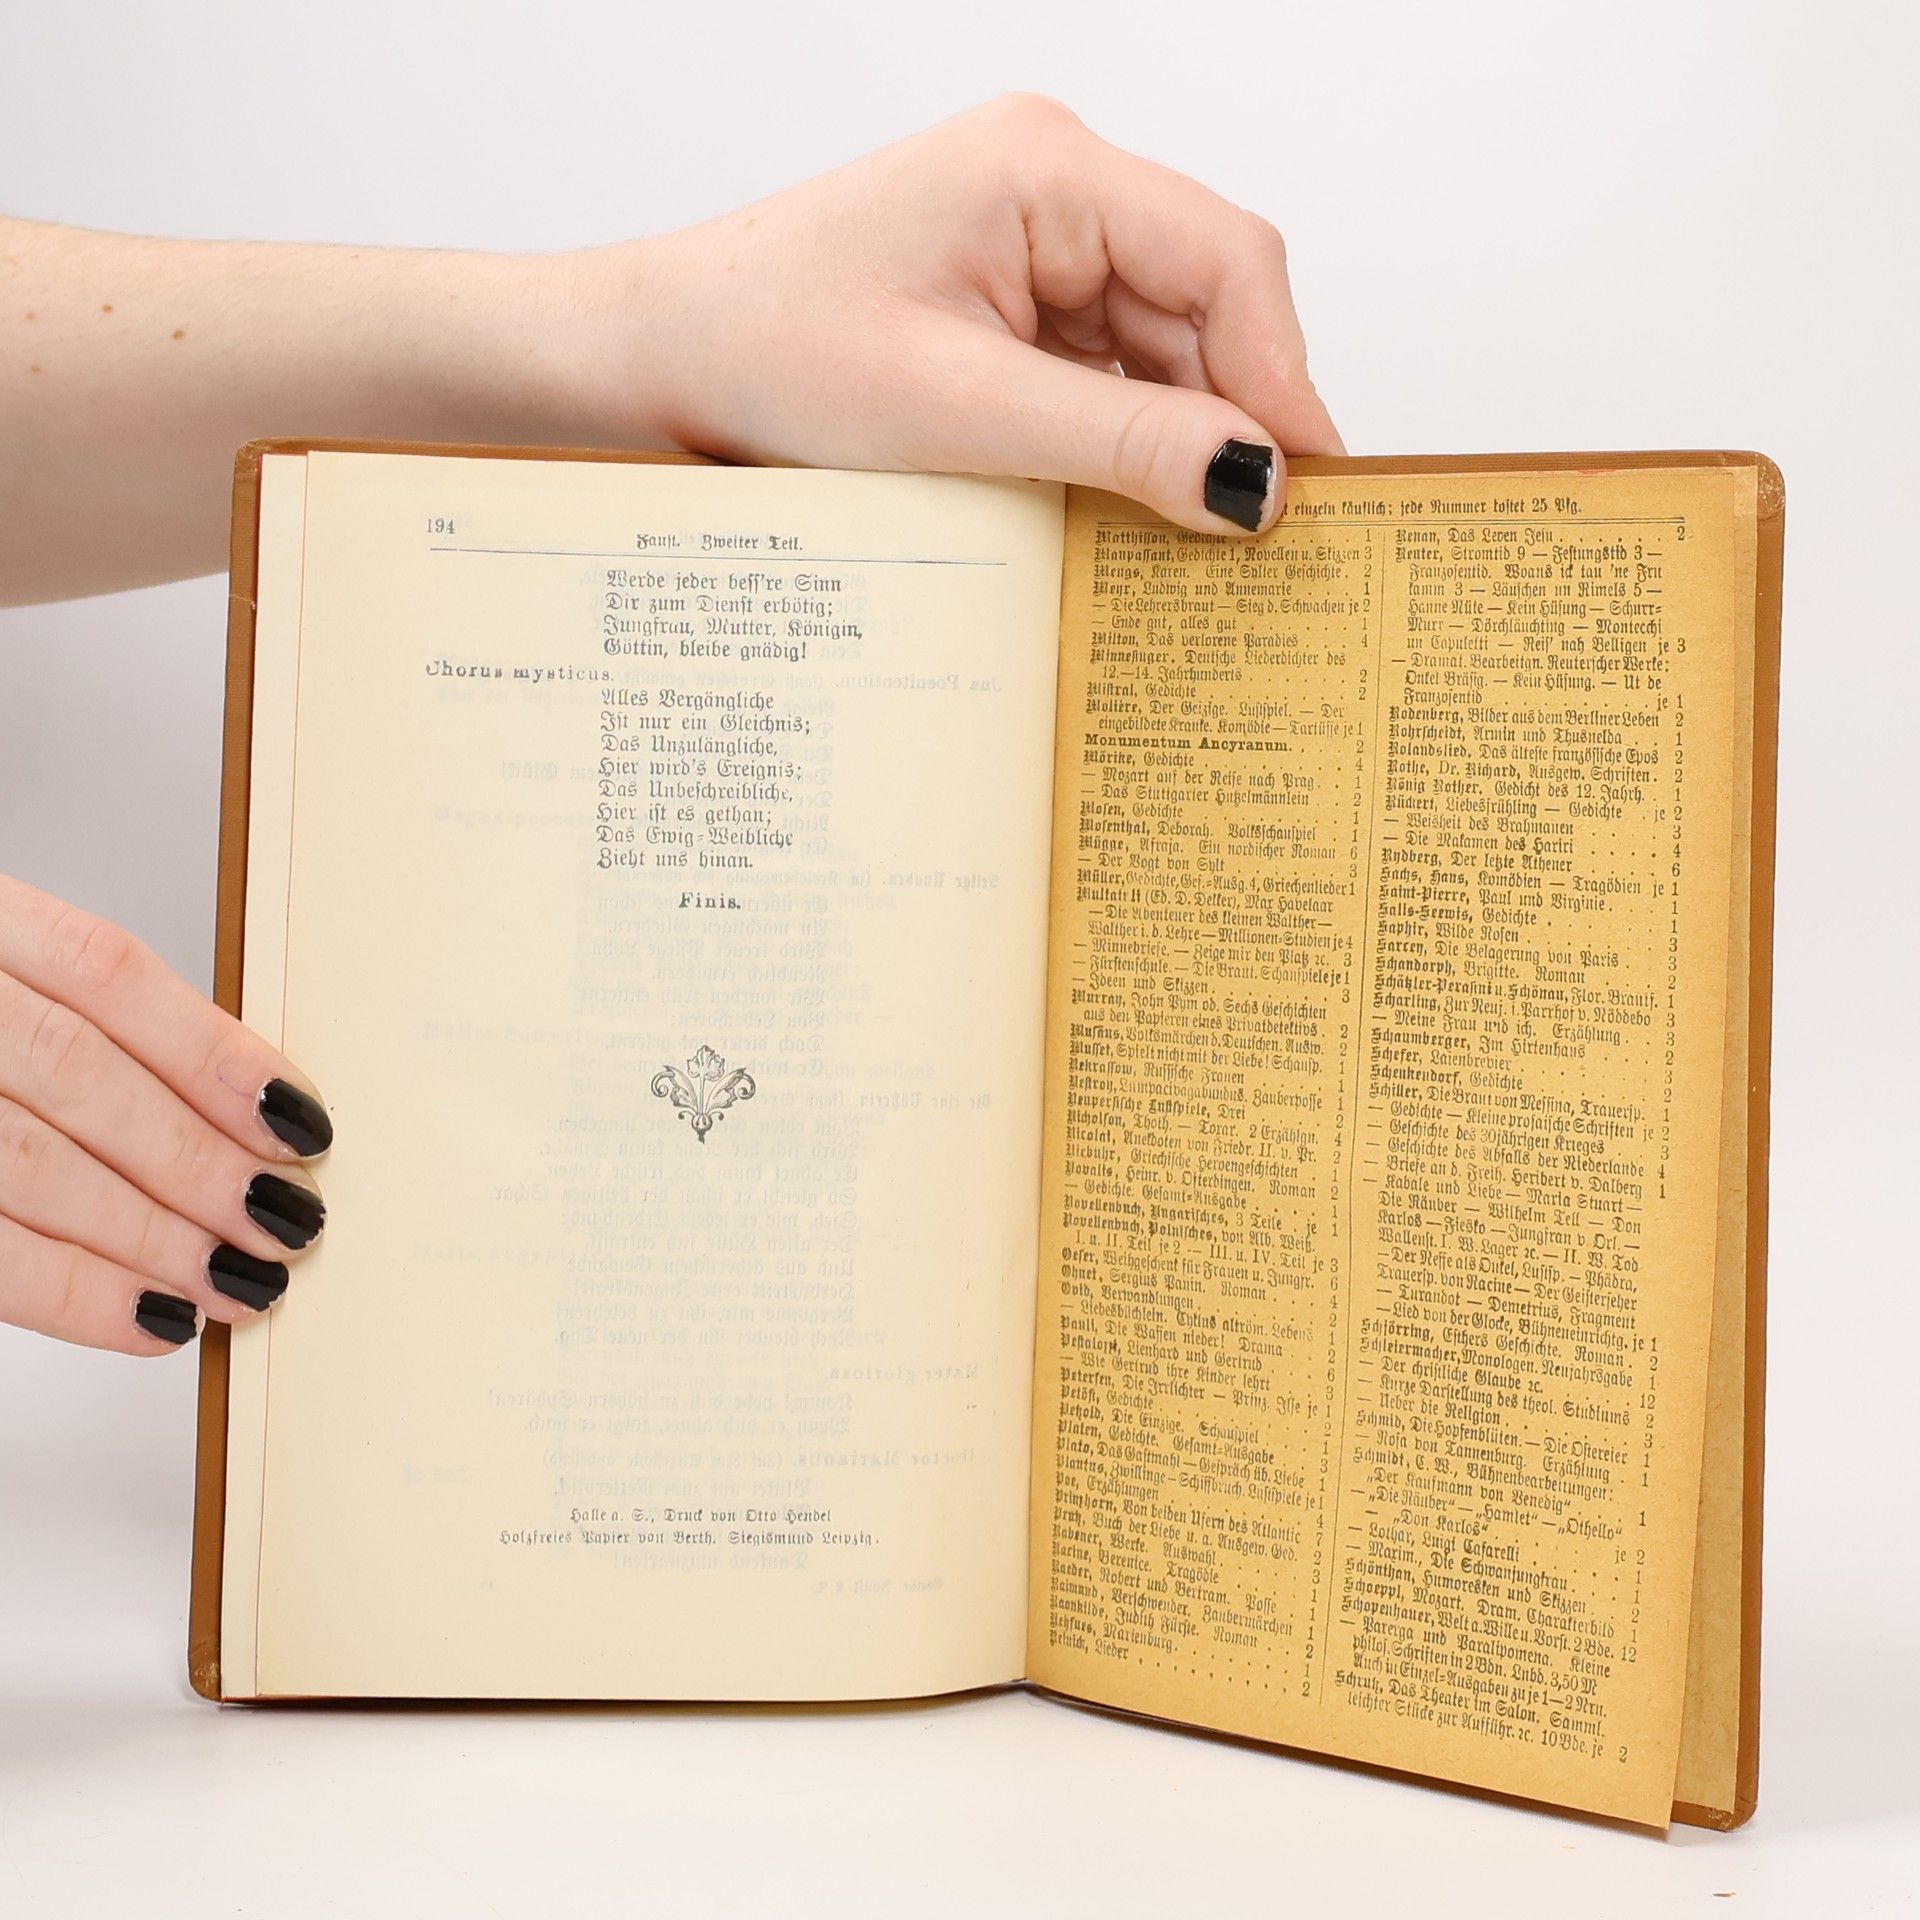 194
Faust. Zweiter Teil.
Werde jeder bess're Sinn
Dir zum Dienst erbötig;
Jungfrau, Mutter, Königin,
Göttin, bleibe gnädig!
Chorus mysticus.
Alles Vergängliche
Ist nur ein Gleichnis;
Das Unzulängliche,
Hier wird's Ereignis;
Das Unbeschreibliche,
Hier ist es gethan;
Das Ewig-Weibliche
Zieht uns hinan.
Finis.
Halle a. S., Druck von Otto Hendel
Holzfreies Papier von Berth. Siegismund Leipzig.
einzeln käuflich; jede Nummer kostet 25 Pfg.
Matthisson, Gedichte . . . . . . . 1
Maupassant, Gedichte 1, Novellen u. Skizzen 3
Mengs, Karen. Eine Sylter Geschichte . 2
Meyr, Ludwig und Annemarie . . . 1
— Die Lehrersbraut — Sieg d. Schwachen je 2
— Ende gut, alles gut . . . . . . 1
Milton, Das verlorene Paradies . . . 4
Minnesinger. Deutsche Liederdichter des
12.—14. Jahrhunderts . . . . . . 2
Mistral, Gedichte . . . . . . . . 2
Molière, Der Geizige. Lustspiel. — Der
eingebildete Kranke. Komödie — Tartüffe je 1
Monumentum Ancyranum. . . . . 2
Mörike, Gedichte . . . . . . . . 4
— Mozart auf der Reise nach Prag . . 1
— Das Stuttgarter Hutzelmännlein . 2
Mosen, Gedichte . . . . . . . . 1
Mosenthal, Deborah. Volksschauspiel . 1
Mügge, Afraja. Ein nordischer Roman 6
— Der Vogt von Sylt . . . . . . 3
Müller, Gedichte, Ges.-Ausg. 4, Griechenlieder 1
Multatuli (Ed. D. Dekker), Max Havelaar
— Die Abenteuer des kleinen Walther —
Walther i. d. Lehre — Millionen-Studien je 4
— Minnebriefe. — Zeige mir den Platz ꝛc. 3
— Fürstenschule. — Die Braut. Schauspiele je 1
— Ideen und Skizzen . . . . . . . 3
Murray, John Pym od. Sechs Geschichten
aus den Papieren eines Privatdetektivs . 2
Musäus, Volksmärchen d. Deutschen. Ausw. 2
Musset, Spielt nicht mit der Liebe! Schausp. 1
Nekrassow, Russische Frauen . . . . 1
Nestroy, Lumpacivagabundus. Zauberposse 1
Neupersische Lustspiele, Drei . . . . 2
Nicholson, Thoth. — Toxar. 2 Erzählgn. 4
Nicolai, Anekdoten von Friedr. II. v. Pr. 2
Niebuhr, Griechische Heroengeschichten . 1
Novalis, Heinr. v. Ofterdingen. Roman 2
— Gedichte. Gesamt-Ausgabe . . . . 1
Novellenbuch, Ungarisches, 3 Teile . je 1
Novellenbuch, Polnisches, von Alb. Weiß.
I. u. II. Teil je 2 — III. u. IV. Teil je 3
Oeser, Weihgeschenk für Frauen u. Jungfr. 6
Ohnet, Sergius Panin. Roman . . . 4
Ovid, Verwandlungen . . . . . . . 2
— Liebesbüchlein. Cyklus altröm. Lebens 1
Pauli, Die Waffen nieder! Drama . . 2
Pestalozzi, Lienhard und Gertrud . . 6
— Wie Gertrud ihre Kinder lehrt . . 3
Petersen, Die Irrlichter — Prinz. Ilse je 1
Petöfi, Gedichte . . . . . . . . 2
Petzold, Die Einzige. Schauspiel . . 1
Platen, Gedichte. Gesamt-Ausgabe . . 3
Plato, Das Gastmahl — Gespräch üb. Liebe 1
Plautus, Zwillinge — Schiffbruch. Lustspiele je 1
Poe, Erzählungen . . . . . . . . 4
Printzhorn, Von beiden Ufern des Atlantic 7
Prutz, Buch der Liebe u. a. Ausgew. Ged. 2
Rabener, Werke. Auswahl . . . . . 3
Racine, Berenice. Tragödie . . . . 1
Raeder, Robert und Bertram. Posse . 1
Raimund, Verschwender. Zaubermärchen 1
Raonhilde, Judith Fürste. Roman . . 2
Rehfues, Marienburg . . . . . . . 1
Reinick, Lieder . . . . . . . . . 2
Renan, Das Leben Jesu . . . . . . 2
Reuter, Stromtid 9 — Festungstid 3 —
Franzosentid. Woans ick tau 'ne Fru
kamm 3 — Läuschen un Rimels 5 —
Hanne Nüte — Kein Hüsung — Schurr-
Murr — Dörchläuchting — Montecchi
un Capuletti — Reis' nah Belligen je 3
— Dramat. Bearbeitgn. Reuterscher Werke:
Onkel Bräsig. — Kein Hüsung. — Ut de
Franzosentid . . . . . . . . je 1
Rodenberg, Bilder aus dem Berliner Leben 2
Rohrscheidt, Armin und Thusnelda . . 1
Rolandslied. Das älteste französische Epos 2
Rothe, Dr. Richard, Ausgew. Schriften . 2
König Rother. Gedicht des 12. Jahrh. . 1
Rückert, Liebesfrühling — Gedichte . je 2
— Weisheit des Brahmanen . . . . 3
— Die Makamen des Hariri . . . . 4
Rydberg, Der letzte Athener . . . . 6
Sachs, Hans, Komödien — Tragödien je 1
Saint-Pierre, Paul und Virginie . . . 1
Salis-Seewis, Gedichte . . . . . . 1
Saphir, Wilde Rosen . . . . . . . 3
Sarcey, Die Belagerung von Paris . . 3
Schandorph, Brigitte. Roman . . . 2
Schätzler-Perasini u. Schönau, Flor. Brautf. 1
Scharling, Zur Neuj. i. Parrhof v. Nöddebo 3
— Meine Frau und ich. Erzählung . . 3
Schaumberger, Im Hirtenhaus . . . 2
Schefer, Laienbrevier . . . . . . . 3
Schenkendorf, Gedichte . . . . . . 2
Schiller, Die Braut von Messina, Trauersp. 1
— Gedichte — Kleine prosaische Schriften je 2
— Geschichte des 30jährigen Krieges . 3
— Geschichte des Abfalls der Niederlande 4
— Briefe an d. Freih. Heribert v. Dalberg 1
— Kabale und Liebe — Maria Stuart —
Die Räuber — Wilhelm Tell — Don
Karlos — Fiesko — Jungfrau v. Orl. —
Wallenst. I. W. Lager ꝛc. — II. W. Tod
— Der Neffe als Onkel, Lustsp. — Phädra,
Trauersp. von Racine — Der Geisterseher
— Turandot — Demetrius, Fragment
— Lied von der Glocke, Bühneneinrichtg. je 1
Schjörring, Esthers Geschichte. Roman . 2
Schleiermacher, Monologen. Neujahrsgabe 1
— Der christliche Glaube ꝛc. . . . . 12
— Kurze Darstellung des theol. Studiums 2
— Ueber die Religion . . . . . . . 3
Schmid, Die Hopfenblüten. — Die Ostereier 1
— Rosa von Tannenburg. Erzählung . 1
Schmidt, C. W., Bühnenbearbeitungen:
„Der Kaufmann von Venedig“
— „Die Räuber“ — „Hamlet“ — „Othello“ 1
— „Don Karlos“ . . . . . . . je 2
— Lothar, Luigi Cafarelli . . . . . 1
— Maxim., Die Schwanjungfrau . . . 1
Schönthan, Humoresken und Skizzen . . 2
Schoeppl, Mozart. Dram. Charakterbild 1
Schopenhauer, Welt a. Wille u. Vorst. 2 Bde. 12
— Parerga und Paralipomena. Kleine
philos. Schriften in 2 Bdn. Lnbd. 3,50 M
Auch in Einzel-Ausgaben zu je 1—2 Nrn.
Schrutz, Das Theater im Salon. Samml.
leichter Stücke zur Aufführ. ꝛc. 10 Bde. je 2